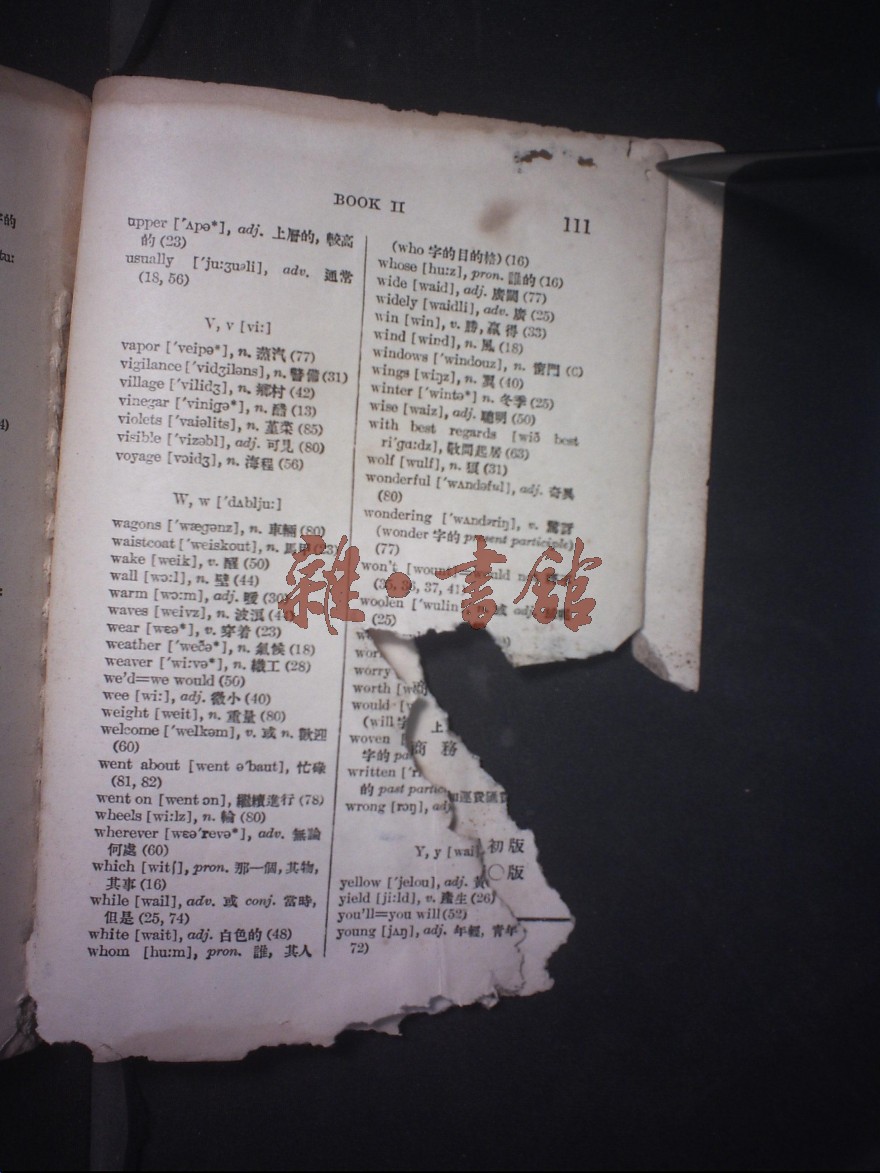 BOOK II
111
upper ['ʌpə*], adj. 上層的, 較高
的 (23)
usually ['ju:ʒuəli], adv. 通常
(18, 56)
V, v [vi:]
vapor ['veipə*], n. 蒸汽 (77)
vigilance ['vidʒiləns], n. 警備 (31)
village ['vilidʒ], n. 鄉村 (42)
vinegar ['vinigə*], n. 醋 (13)
violets ['vaiəlits], n. 堇菜 (85)
visible ['vizəbl], adj. 可見 (80)
voyage [vɔidʒ], n. 海程 (56)
W, w ['dʌblju:]
wagons ['wægənz], n. 車輛 (80)
waistcoat ['weiskout], n. 馬甲 (23)
wake [weik], v. 醒 (50)
wall [wɔ:l], n. 壁 (44)
warm [wɔ:m], adj. 暖 (30)
waves [weivz], n. 波浪
wear [wɛə*], v. 穿着 (23)
weather ['weðə*], n. 氣候 (18)
weaver ['wi:və*], n. 織工 (28)
we'd=we would (50)
wee [wi:], adj. 微小 (40)
weight [weit], n. 重量 (80)
welcome ['welkəm], v. 或 n. 歡迎
(60)
went about [went ə'baut], 忙碌
(81, 82)
went on [went ɔn], 繼續進行 (78)
wheels [wi:lz], n. 輪 (80)
wherever [wɛə'revə*], adv. 無論
何處 (60)
which [witʃ], pron. 那一個, 其物,
其事 (16)
while [wail], adv. 或 conj. 當時,
但是 (25, 74)
white [wait], adj. 白色的 (48)
whom [hu:m], pron. 誰, 其人
(who 字的目的格) (16)
whose [hu:z], pron. 誰的 (16)
wide [waid], adj. 廣闊 (77)
widely [waidli], adv. 廣 (25)
win [win], v. 勝, 贏得 (33)
wind [wind], n. 風 (18)
windows ['windouz], n. 窗門 (C)
wings [wiŋz], n. 翼 (40)
winter ['wintə*] n. 冬季 (25)
wise [waiz], adj. 聰明 (50)
with best regards [wið best
ri'ga:dz], 敬問起居 (63)
wolf [wulf], n. 狼 (31)
wonderful ['wʌndəful], adj. 奇異
(80)
wondering ['wʌndəriŋ], v. 驚訝
(wonder 字的 present participle)
(77)
won't [wount]=would not
(35, 36, 37, 41)
woolen ['wulin], n. 或 adj.
(25)
worry
worth
would
(will 字
上
woven
商務
字的
written
的 past
運費匯費
wrong [rɔŋ],
Y, y [wai]
初版
〇版
yellow ['jelou], adj. 黃
yield [ji:ld], v. 產生 (26)
you'll=you will (52)
young [jʌŋ], adj. 年輕, 青年
72)
雜·書館